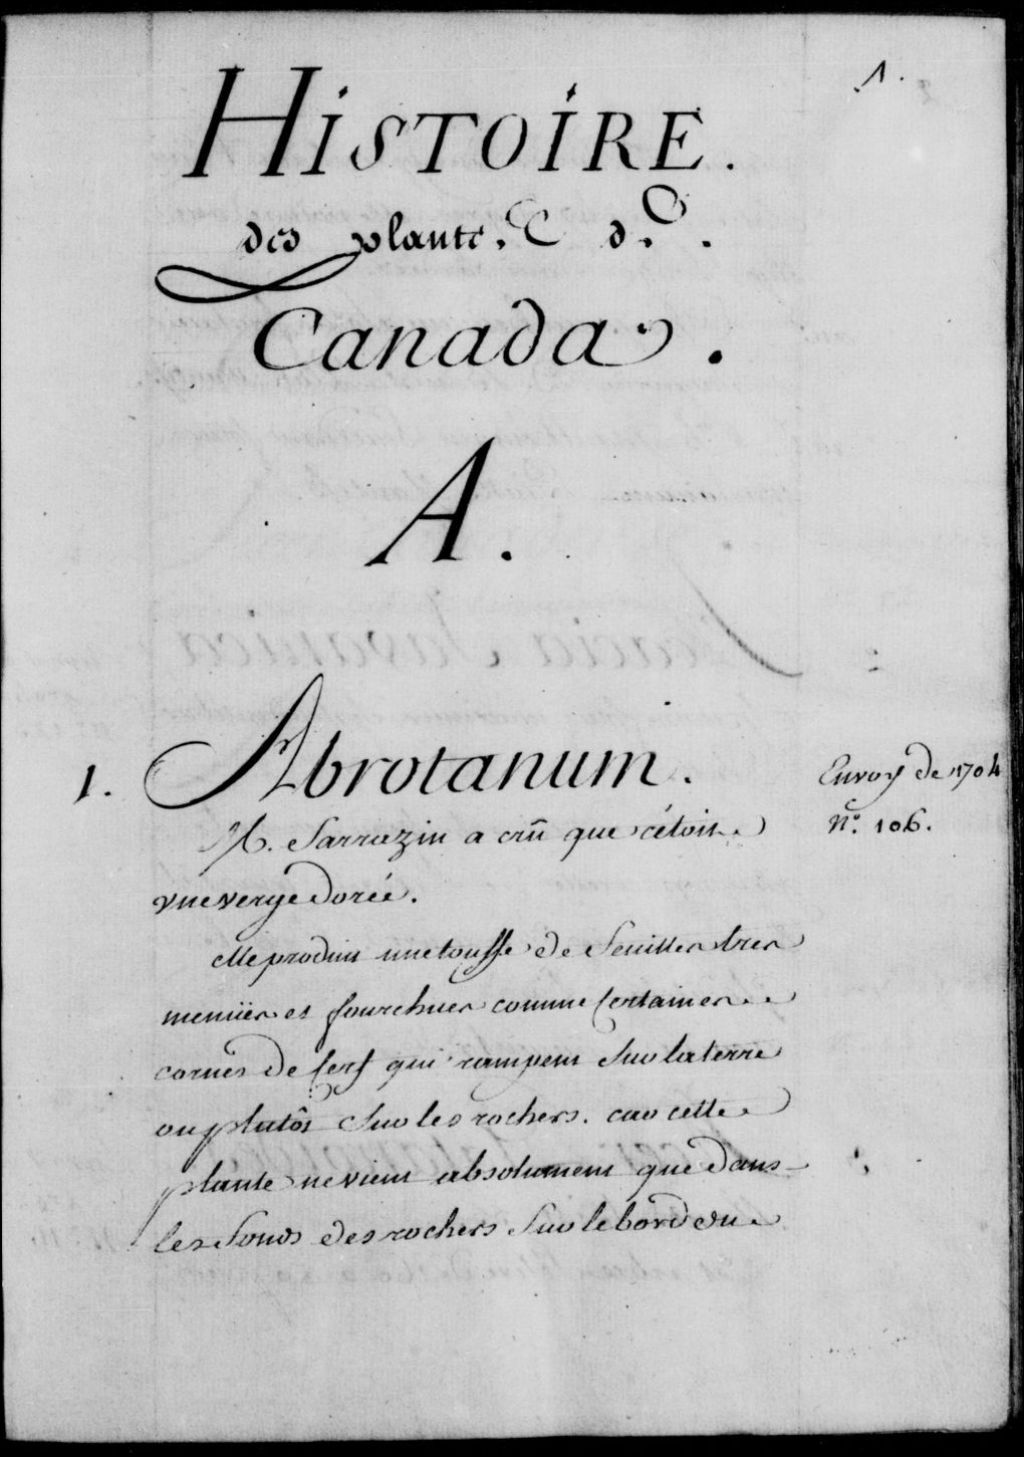 1.
HISTOIRE.
des plantes de
Canada.
A.
1. Abrotanum.
Envoy de 1704
n.º 106.
M. Sarrazin a crû que c'étoit
vne verge dorée.
elle produit une touffe de feuilles tres
menües et fourchues comme certaines
cornes de cerf qui rampent sur la terre
ou plutôt sur les rochers. car cette
plante ne vient absolument que dans
les fonds des rochers sur le bord du